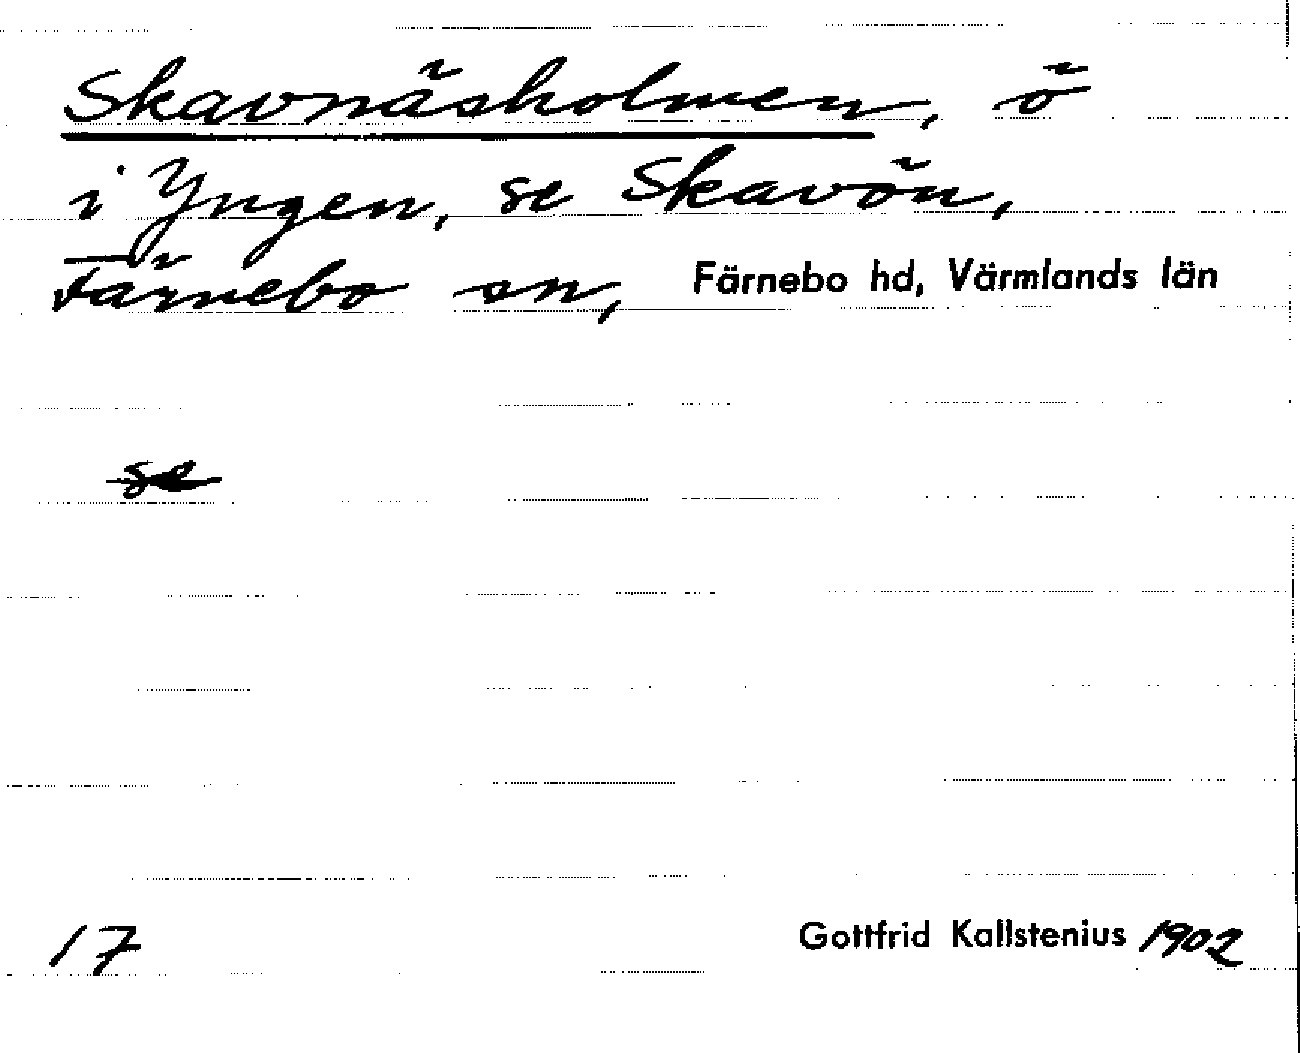 Skavnäsholmen, ö
i Yngen, se Skavön,
Färnebo sn, Färnebo hd, Värmlands län
se
17 Gottfrid Kallstenius 1902